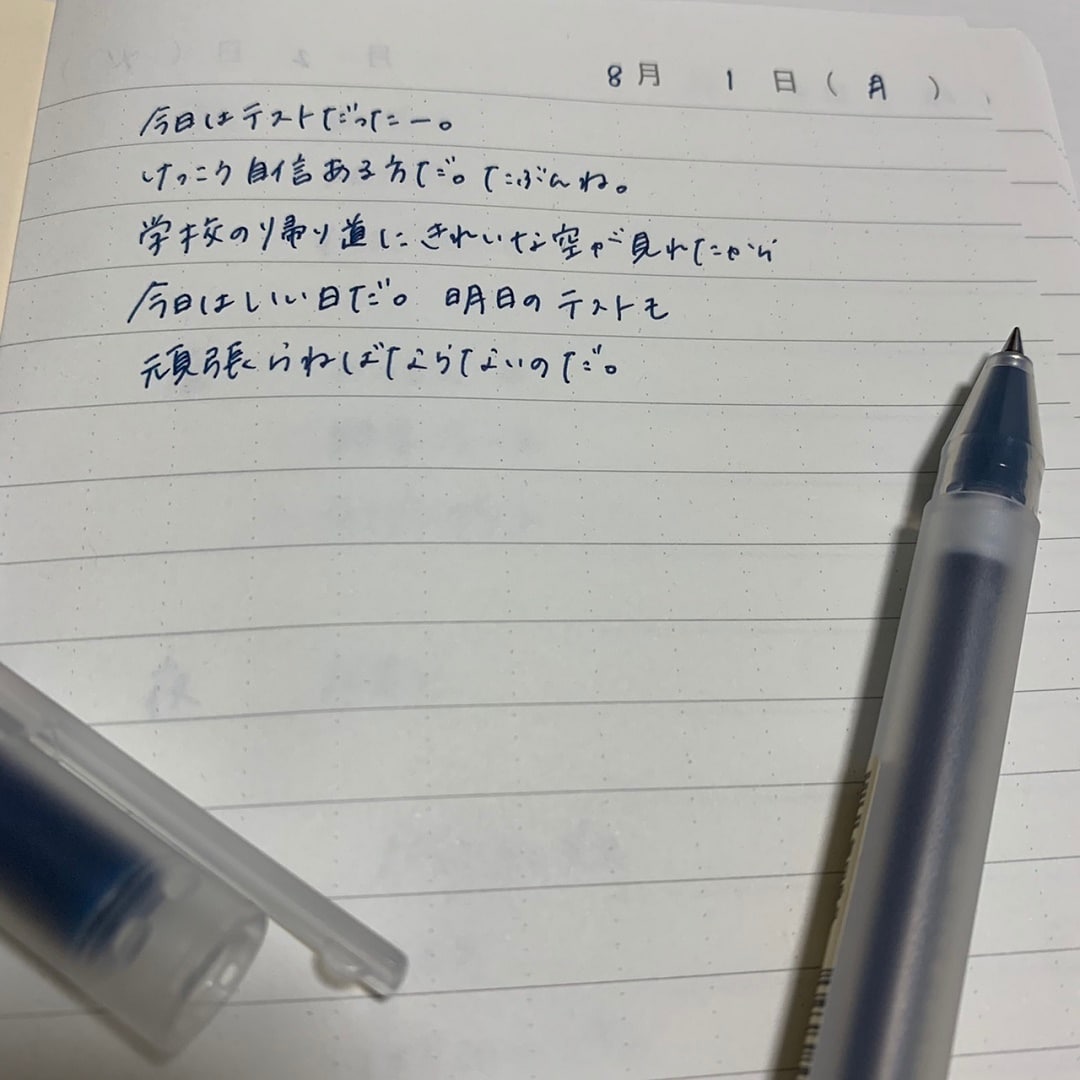 8月 1日(月)
今日はテストだったー。
けっこう自信ある方だ。たぶんね。
学校の帰り道にきれいな空が見れたから
今日はいい日だ。明日のテストも
頑張らねばならないのだ。